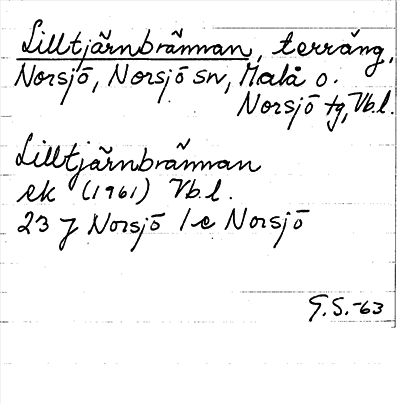 Lilltjärnbrännan, terräng,
Norsjö, Norsjö sn, Malå o.
Norsjö tg, Vb.l.
Lilltjärnbrännan
ek (1961) Vb.l.
23 J Norsjö 1 e Norsjö
G.S.-63